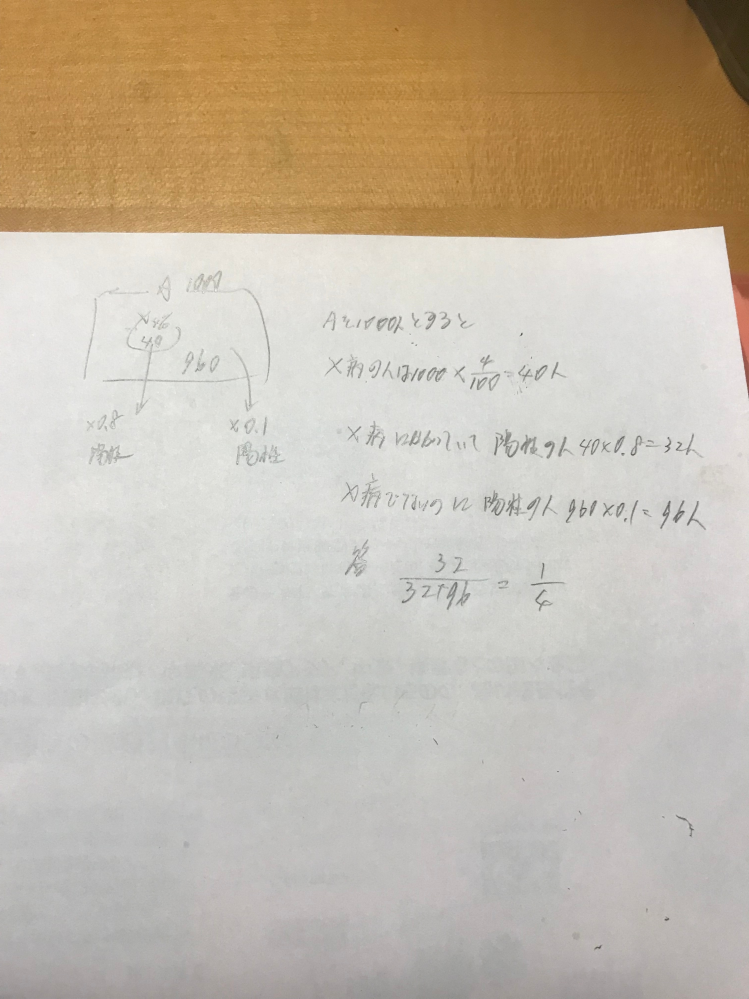 A 1000
X病
40
960
×0.8
陽性
×0.1
陽性
Aを1000人とすると
X病の人は1000 × 4/100 = 40人
X病にかかっていて 陽性の人 40×0.8=32人
X病でないのに 陽性の人 960×0.1=96人
答 32/32+96 = 1/4